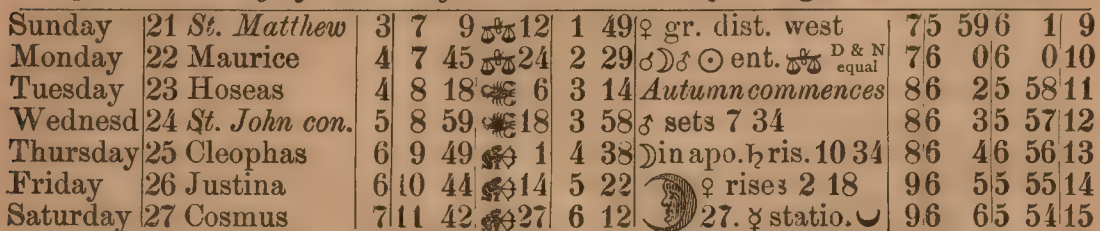 Sunday 21 St. Matthew 3 7 9 ♎12 1 49 ♀ gr. dist. west 7 5 59 6 1 9
Monday 22 Maurice 4 7 45 ♎24 2 29 ☌☽♂ ☉ ent. ♎ D & N equal 7 6 0 6 0 10
Tuesday 23 Hoseas 4 8 18 ♏ 6 3 14 Autumn commences 8 6 2 5 58 11
Wednesd 24 St. John con. 5 8 59 ♏18 3 58 ♂ sets 7 34 8 6 3 5 57 12
Thursday 25 Cleophas 6 9 49 ♐ 1 4 38 ☽in apo. ♄ ris. 10 34 8 6 4 6 56 13
Friday 26 Justina 6 10 44 ♐14 5 22 ♀ rises 2 18 9 6 5 5 55 14
Saturday 27 Cosmus 7 11 42 ♐27 6 12 27. ☿ statio. 9 6 6 5 54 15